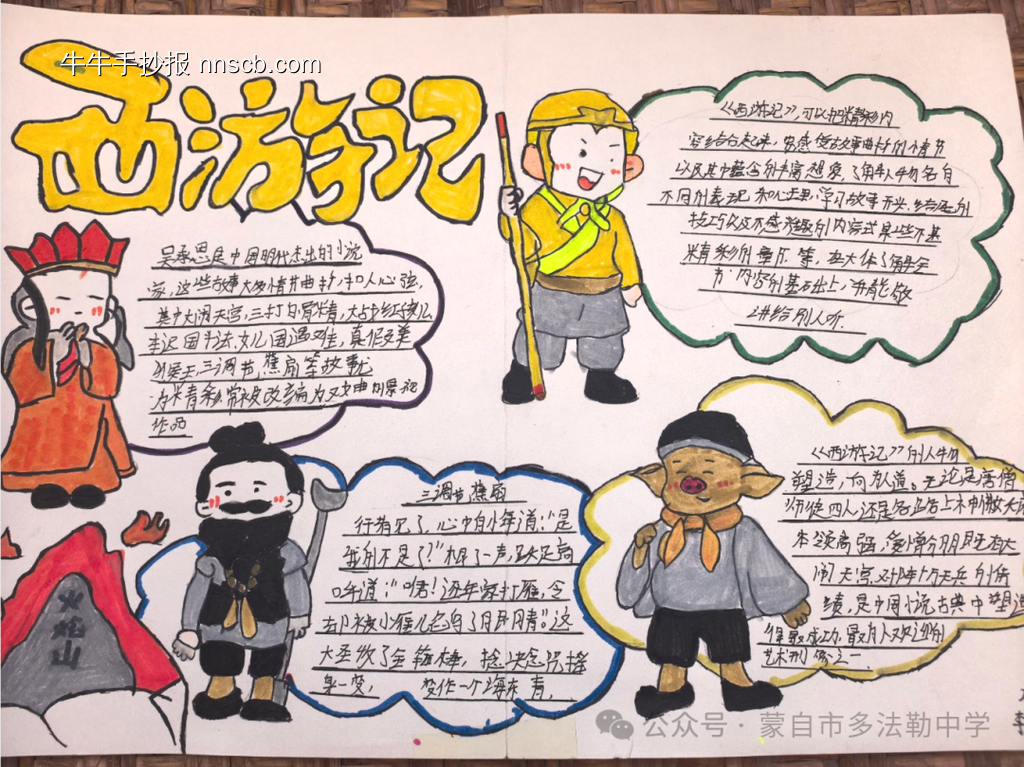 牛牛手抄报 nnscb.com
西游记
吴承恩是中国明代杰出的小说
家,这些故事大多情节曲折,扣人心弦,
其中大闹天宫,三打白骨精,大战红孩儿,
车迟国斗法,女儿国遇难,真假美
猴王,三调芭蕉扇等故事尤
为精彩,常被改编为戏曲
作品
《西游记》可以把精彩内
容结合起来,
以及其中蕴含的丰富想象,了解人物各自
不同的表现和心理,学习故事开头,结尾的
技巧以及不感兴趣的内容或某些不太
精彩的章节等,在大体了解全
书内容的基础上,并能够
讲给别人听.
三调芭蕉扇
行者见了,心中自忖道:"是
我的不是了?"
道:"嗯!逐年家打雁,今
却被小雁儿鹐了眼睛。"这
大圣收了金箍棒,捻诀念咒摇
身一变, 变作一个海东青,
火焰山
《西游记》的人物
塑造,向有人道。无论是唐僧
师徒四人还是各路
本领高强,爱憎分明
闹天宫,对阵十万天兵的情
绩,是中国小说古典中塑造
得最成功,最有人欢迎的
艺术形象之一
公众号·蒙自市多法勒中学